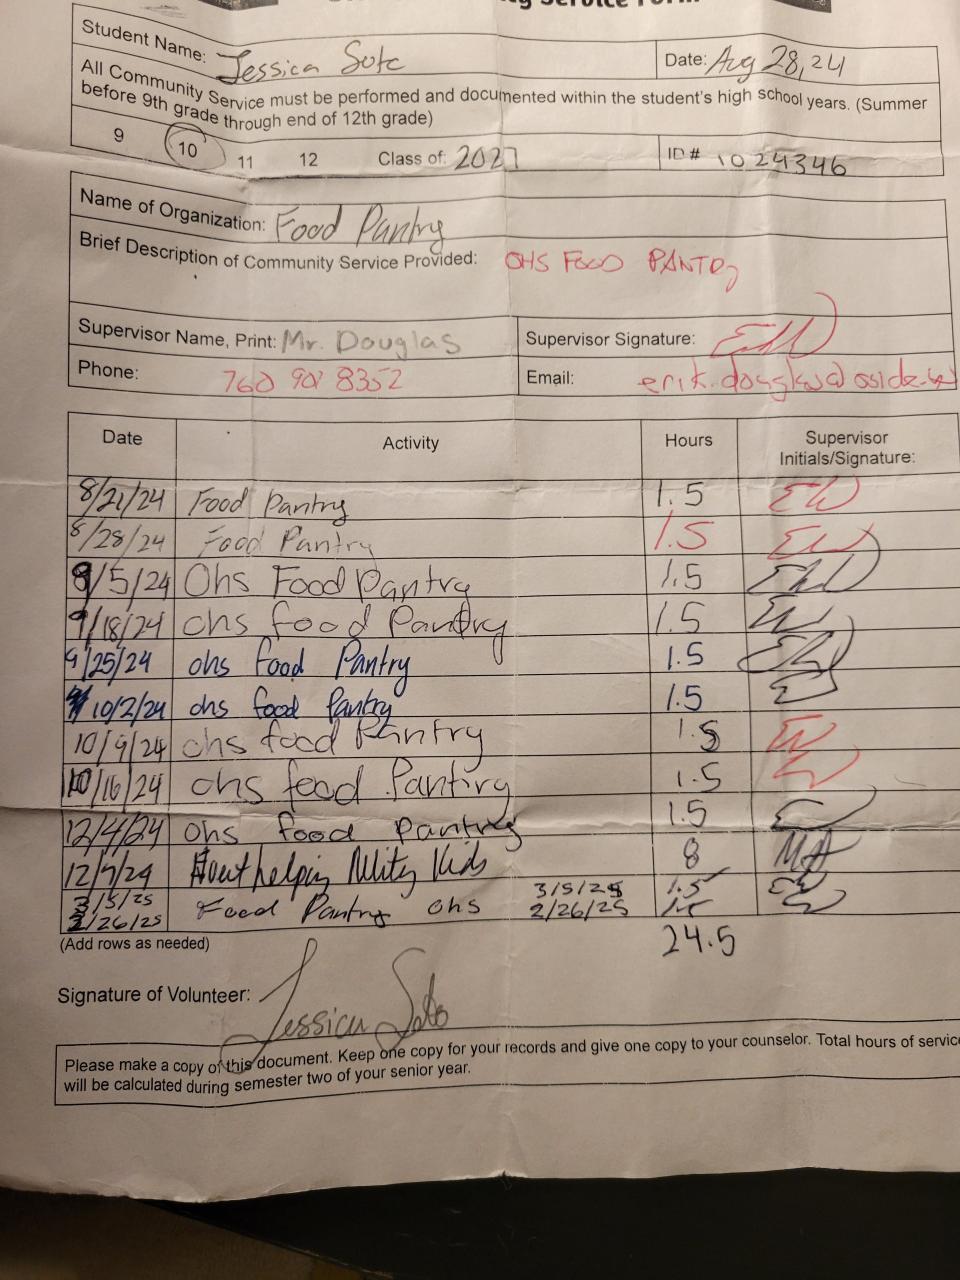 Service Form
Student Name: Jessica Soto
Date: Aug 28, 24
All Community Service must be performed and documented within the student's high school years. (Summer
before 9th grade through end of 12th grade)
9 10 11 12 Class of: 2027
ID # 1024346
Name of Organization: Food Pantry
Brief Description of Community Service Provided: OHS FOOD PANTRY
Supervisor Name, Print: Mr. Douglas
Supervisor Signature:
Phone: 760 901 8352
Email:
Date Activity Hours Supervisor
Initials/Signature:
8/21/24 Food Pantry 1.5 EW
8/28/24 Food Pantry 1.5 EW
9/5/24 Ohs Food Pantry 1.5
9/18/24 ohs food Pantry 1.5
9/25/24 ohs food Pantry 1.5
10/2/24 ohs food Pantry 1.5
10/9/24 ohs food Pantry 1.5
10/16/24 ohs food Pantry 1.5
12/4/24 ohs food pantry 1.5
12/7/24 helping Kids 8 MA
3/5/25 3/5/25 1.5
2/26/25 Food Pantry ohs 2/26/25 1.5
(Add rows as needed) 24.5
Signature of Volunteer: Jessica Soto
Please make a copy of this document. Keep one copy for your records and give one copy to your counselor. Total hours of service
will be calculated during semester two of your senior year.